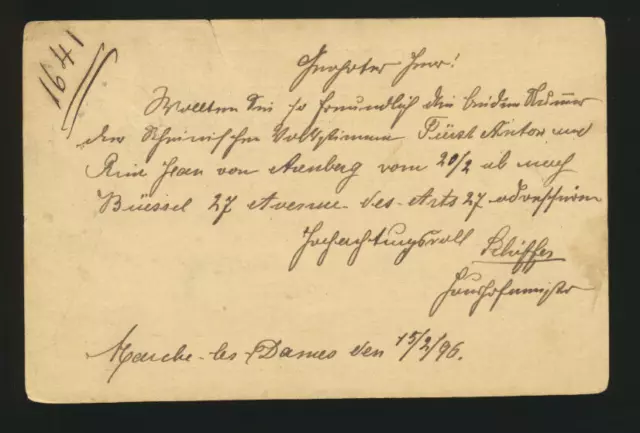 1641
Geehrter Herr!
Wollten Sie so freundlich die beiden Nummer
der Rheinischen Volksstimme Fürst Anton und
Prinz Jean von Arenberg vom 20/2 ab nach
Brüssel 27 Avenue-des-Arts 27 adressieren
Hochachtungsvoll Schiffer
Haushofmeister
Marche-les-Dames den 15/2/96.